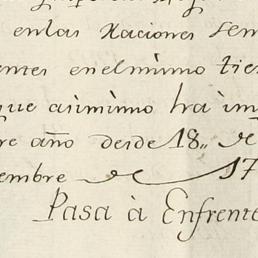 en las Naciones sem
entes en el mismo tie
que asimismo ha im
re año desde 18,, de
embre de 17
Pasa à Enfrente